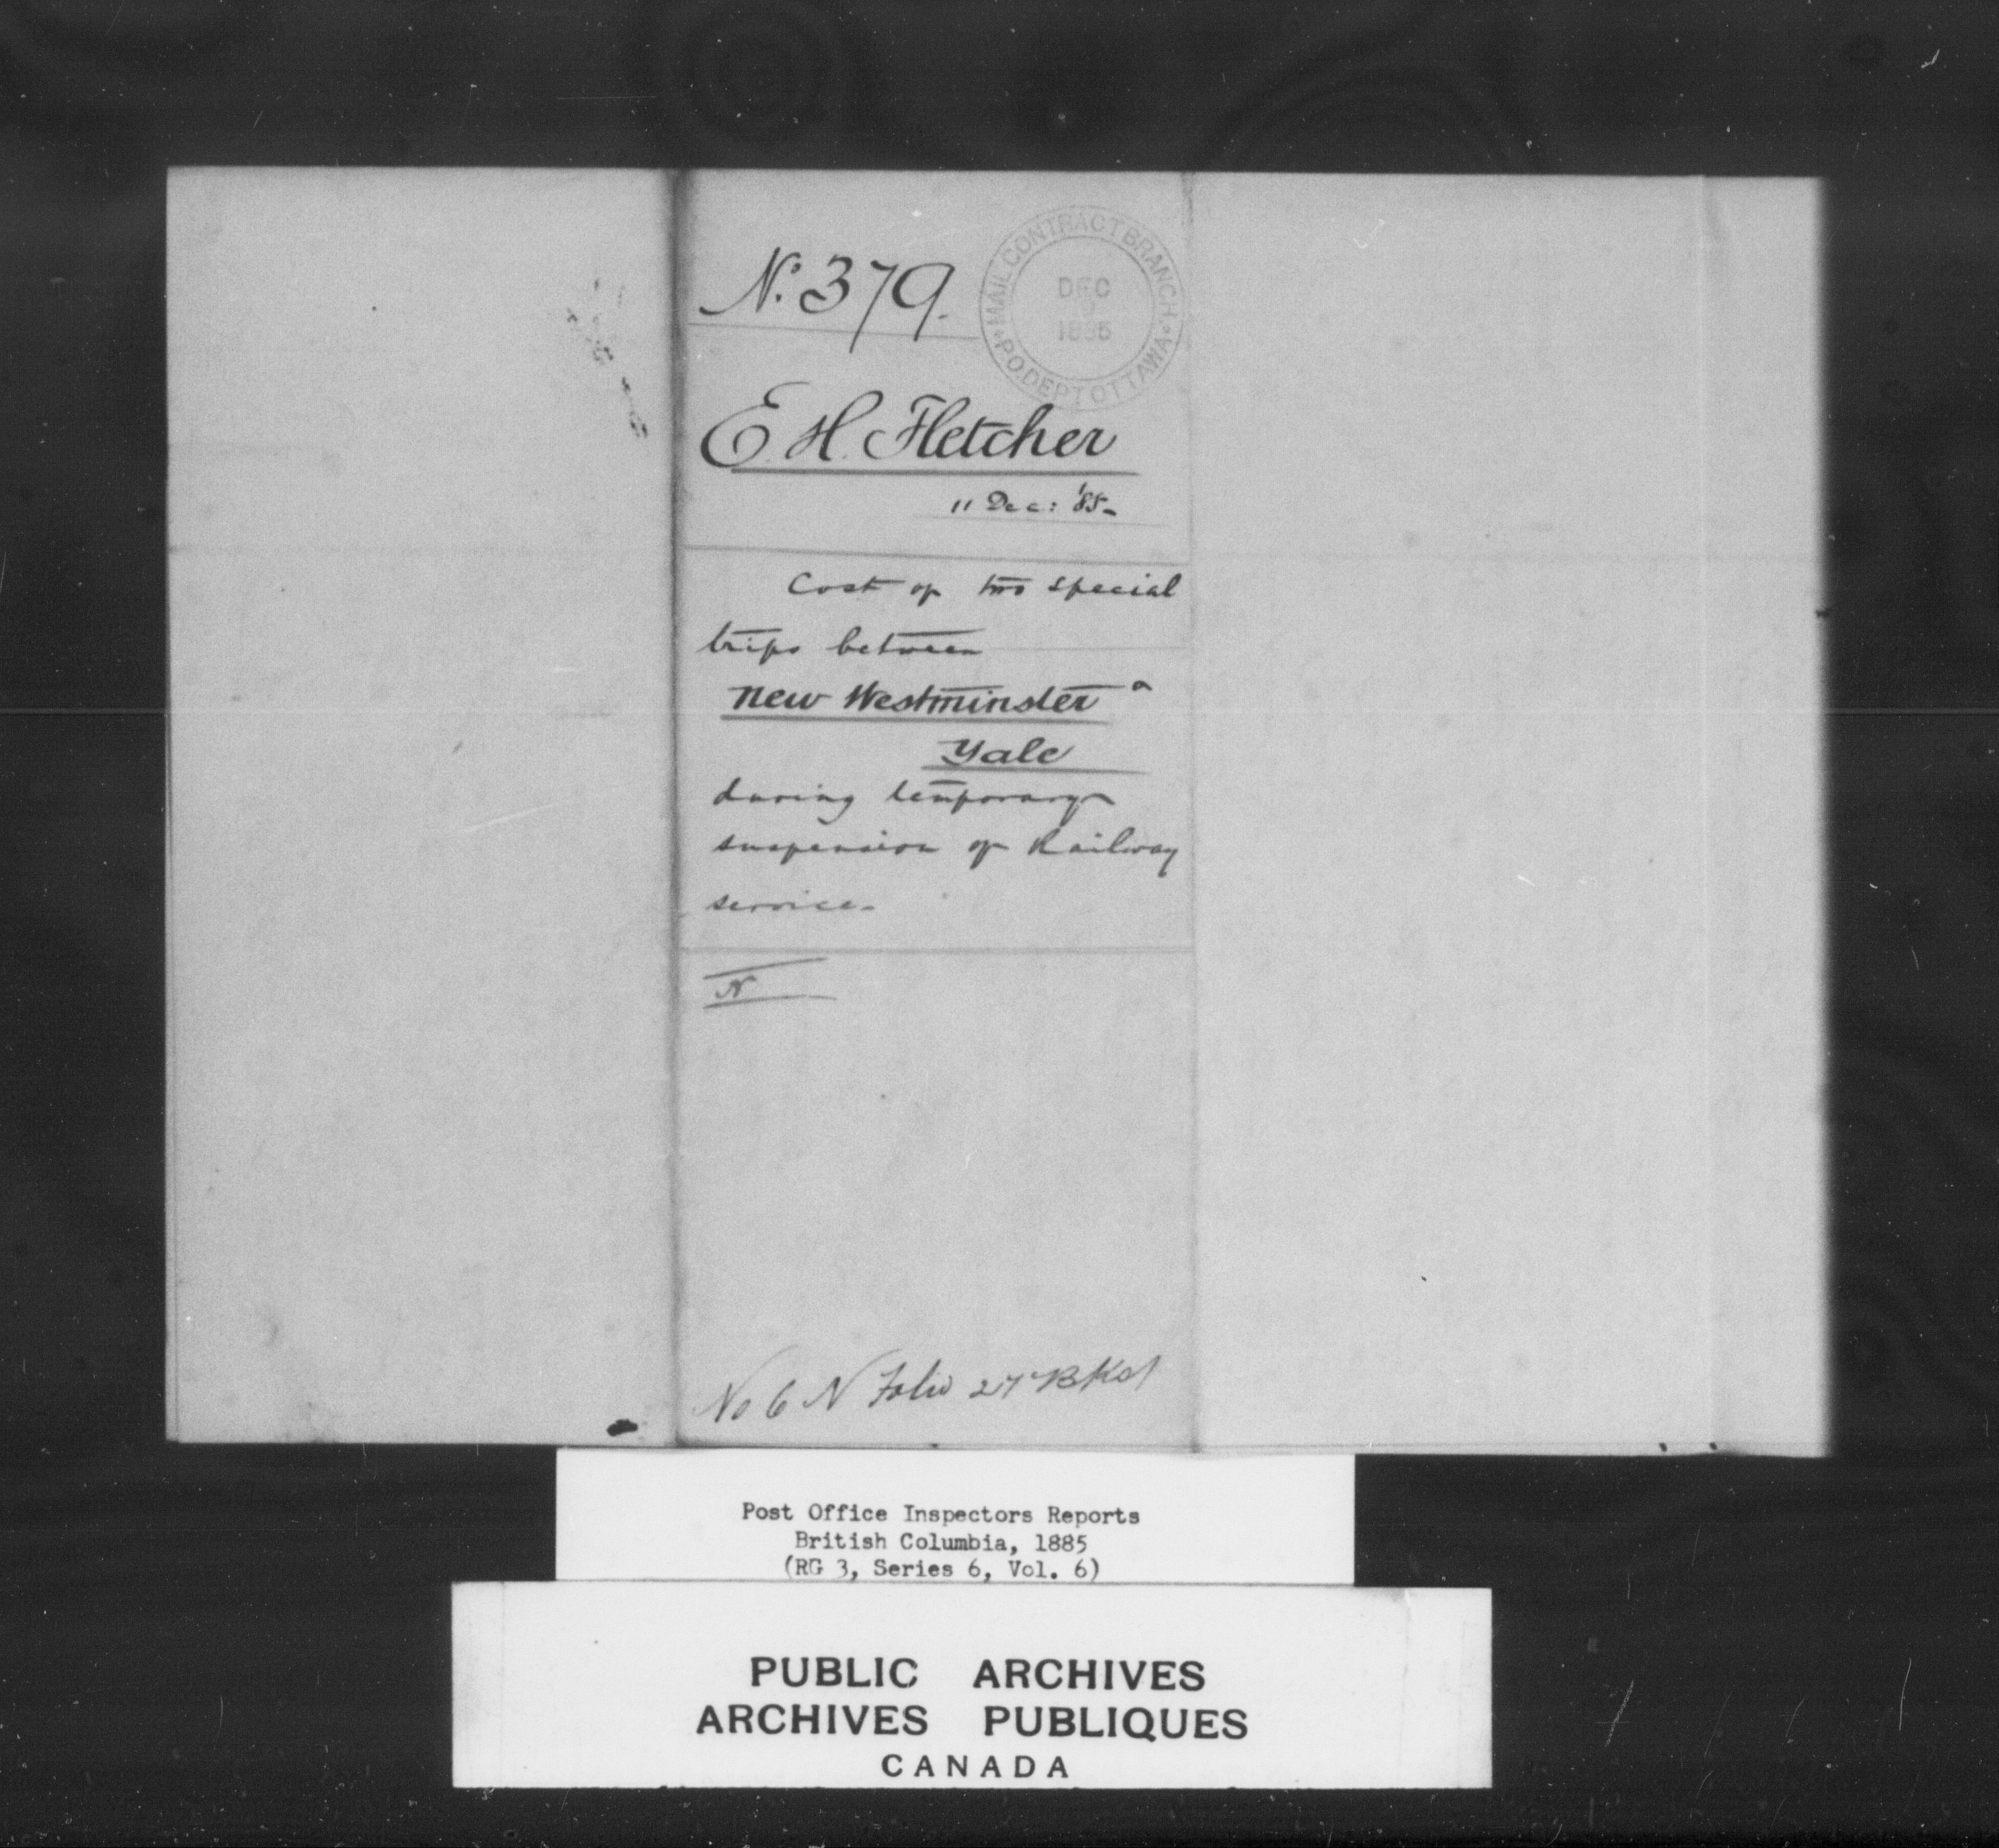 No. 379.
MAIL CONTRACT BRANCH
DEC
1885
P.O. DEPT OTTAWA
E. H. Fletcher
11 Dec: '85
Cost of two special
trips between
New Westminster &
Yale
during temporary
suspension of Railway
service.
N
No 6 N Folio 27
Post Office Inspectors Reports
British Columbia, 1885
(RG 3, Series 6, Vol. 6)
PUBLIC ARCHIVES
ARCHIVES PUBLIQUES
CANADA